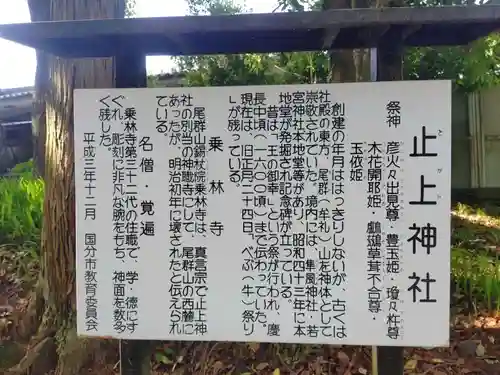 止上神社
とがみ
祭神 彦火々出見尊・豊玉姫・瓊々杵尊
木花開耶姫・鸕鷀草茸不合尊・
玉依姫
創建の年月ははっきりしないが、古くは
社殿の東方、尾群(牟礼)山を神体として
崇敬されていた。境内には、隼風神社・若
宮神社や地蔵堂等があり、昭和四十二年に本
地堂が発掘され記念碑が立っている。
昔は、「王の御幸」という祭が行われ、慶
長中頃(一六〇〇頃)まで伝わっていた。
現在は、旧正月二十四日、べぶ(牛)祭り
」が残っている。
乗林寺
尾群山錫杖院乗林寺は、真言宗で止上神
社の別当の神職寺にして、尾群山の西麓に
あったが、明治初年に壊されたと伝えられ
ている。
名僧・覚遍
乗林寺第三十二代の住職で、学・徳にす
ぐれ、彫刻に非凡な腕をもち、神面を数多
く残した。
平成三年十二月 国分市教育委員会